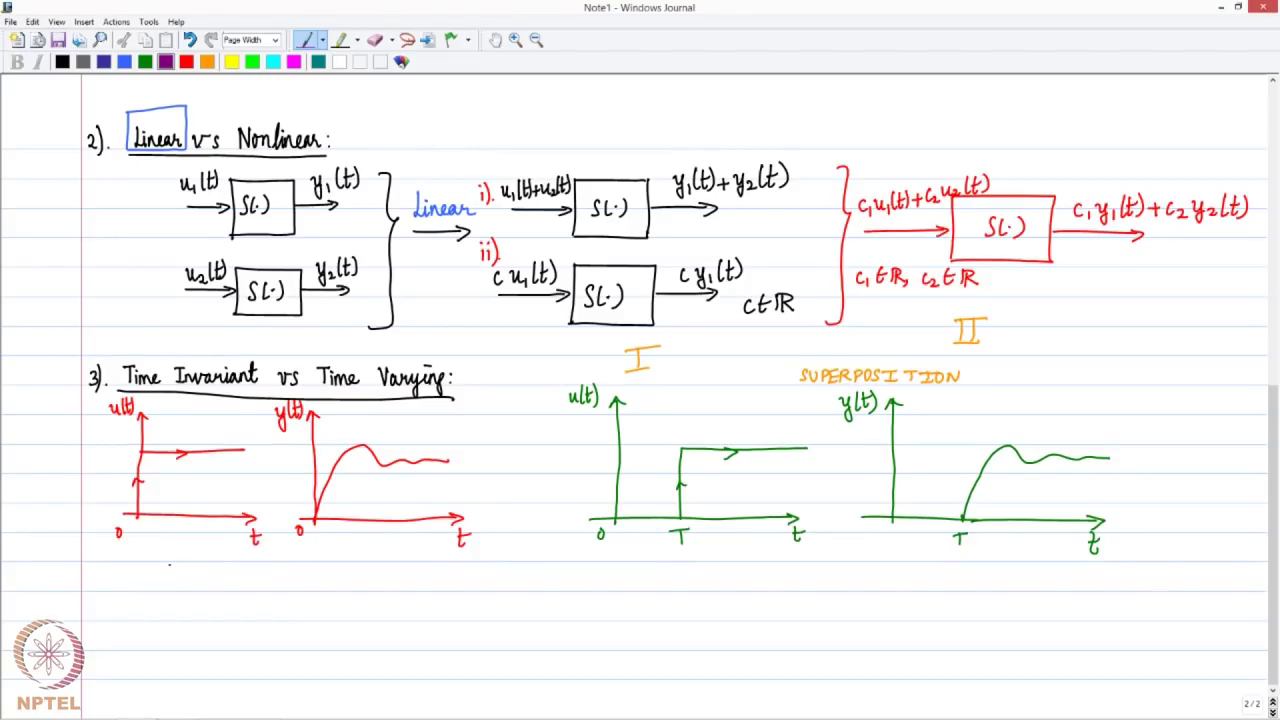 Note1 - Windows Journal
File Edit View Insert Actions Tools Help
Page Width
B I
2). Linear vs Nonlinear:
u1(t) S(.) y1(t)
u2(t) S(.) y2(t)
Linear
i). u1(t)+u2(t) S(.) y1(t)+y2(t)
ii). c u1(t) S(.) c y1(t)
c ∈ ℝ
I
c1u1(t)+c2u2(t) S(.) c1y1(t)+c2y2(t)
c1 ∈ ℝ, c2 ∈ ℝ
II
SUPERPOSITION
3). Time Invariant vs Time Varying:
u(t) y(t) u(t) y(t)
0 t 0 t 0 T t T t
NPTEL
2 / 2